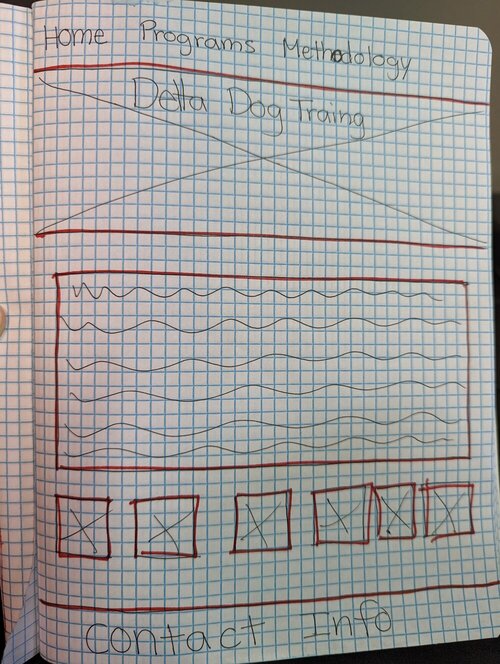 Home Programs Methodology
Delta Dog Traing
Contact Info